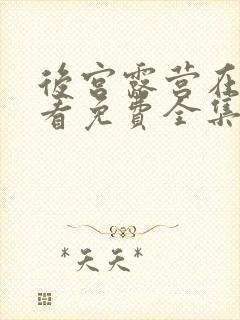 後宮露营在
看免費全集
*天天*